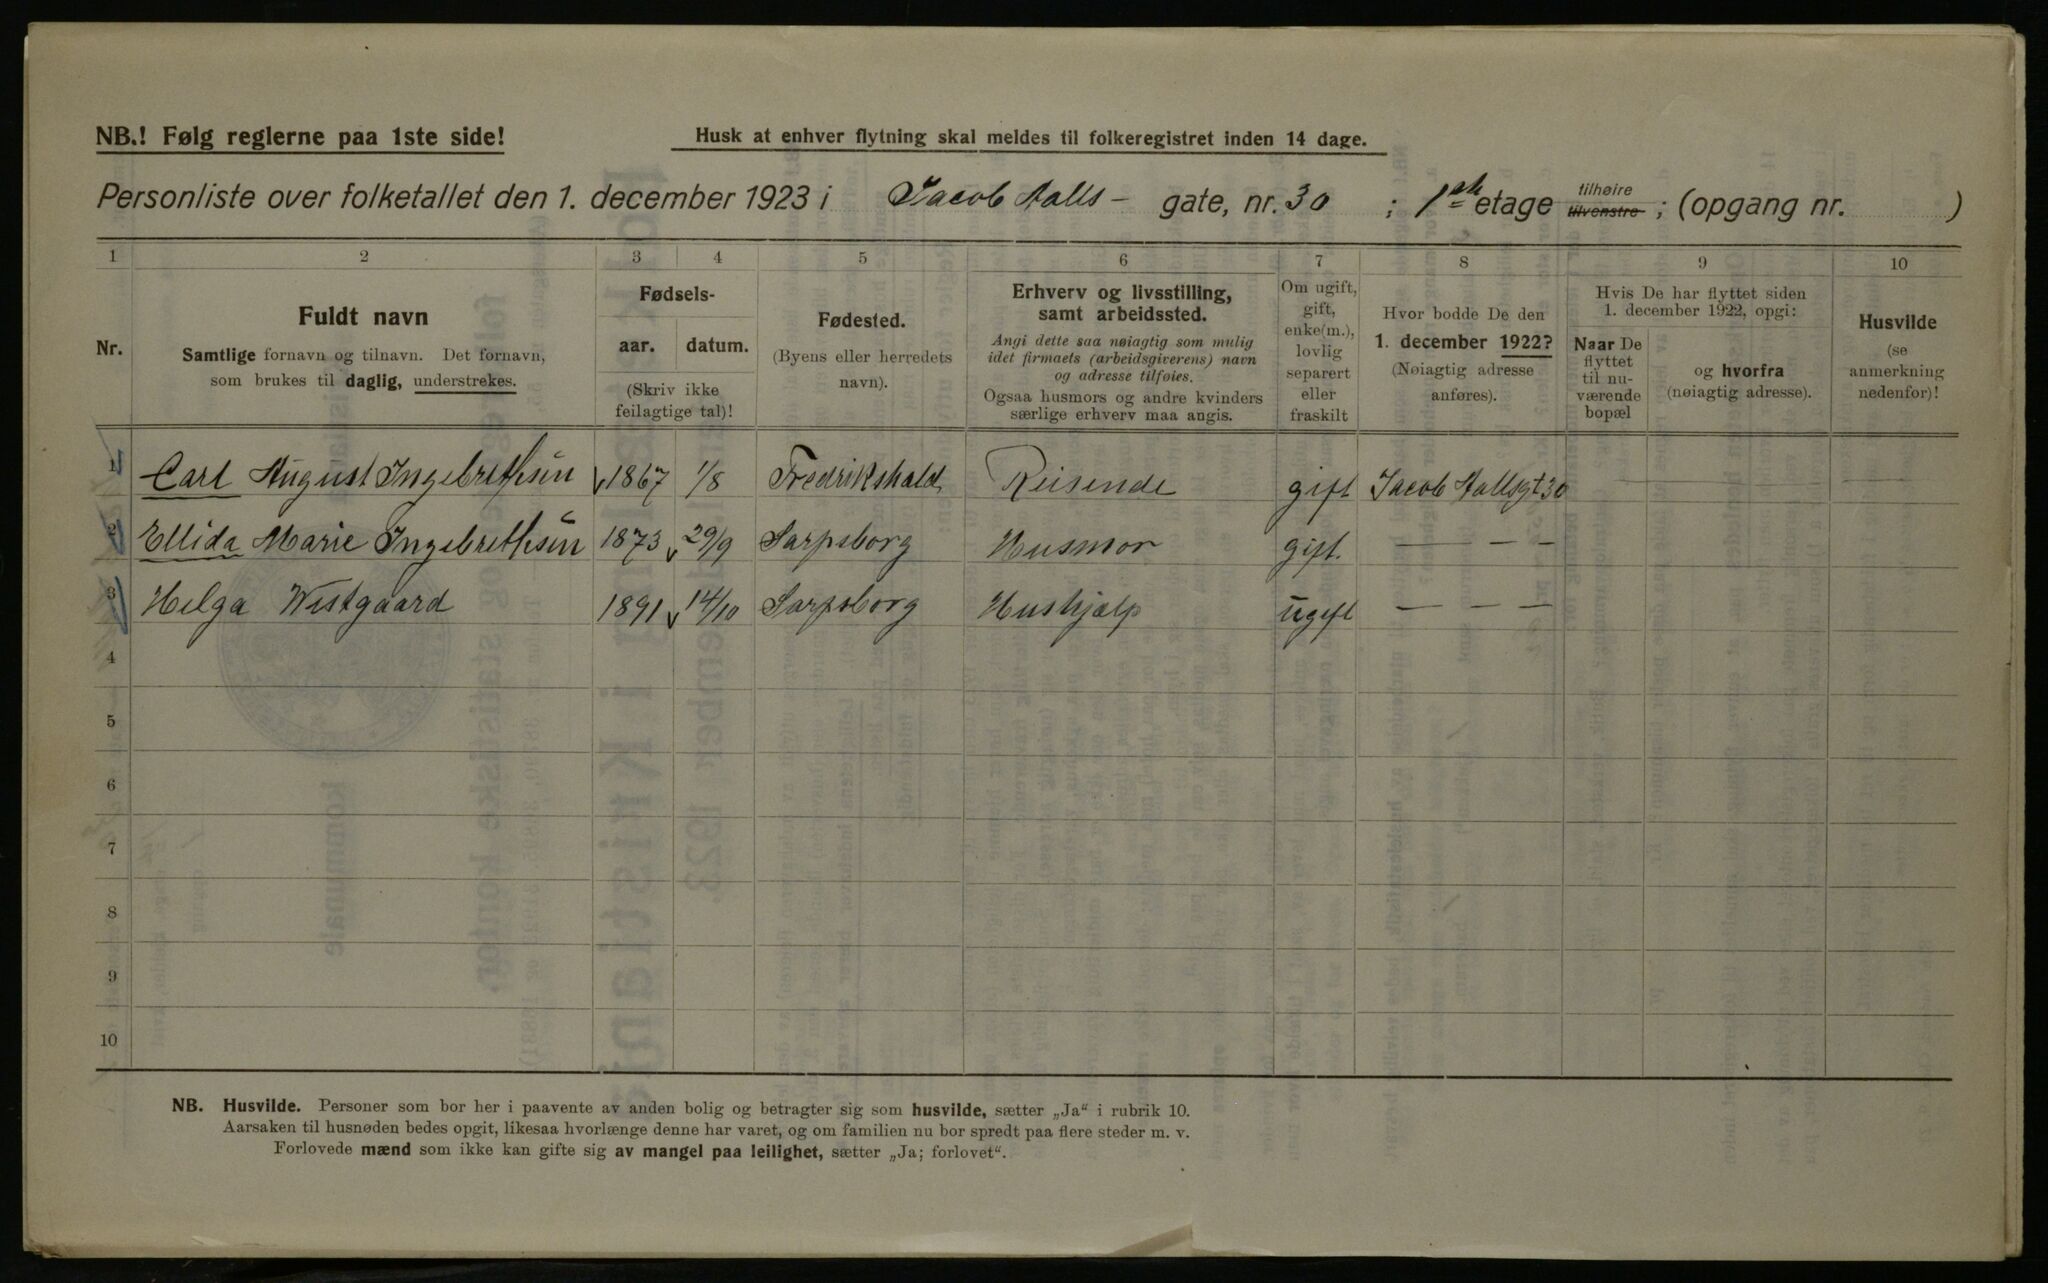 NB.! Følg reglerne paa 1ste side!
Husk at enhver flytning skal meldes til folkeregistret inden 14 dage.
Personliste over folketallet den 1. december 1923 i Jacob Aalls - gate, nr. 30 ; 1ste etage tilhøire tilvenstre ; (opgang nr. )
1 2 3 4 5 6 7 8 9 10
Nr.
Fuldt navn
Samtlige fornavn og tilnavn. Det fornavn,
som brukes til daglig, understrekes.
Fødsels-
aar. datum.
(Skriv ikke
feilagtige tal)!
Fødested.
(Byens eller herredets
navn).
Erhverv og livsstilling,
samt arbeidssted.
Angi dette saa nøiagtig som mulig
idet firmaets (arbeidsgiverens) navn
og adresse tilføies.
Ogsaa husmors og andre kvinders
særlige erhverv maa angis.
Om ugift,
gift,
enke(m.),
lovlig
separert
eller
fraskilt
Hvor bodde De den
1. december 1922?
(Nøiagtig adresse
anføres).
Hvis De har flyttet siden
1. december 1922, opgi:
Naar De
flyttet
til nu-
værende
bopæl
og hvorfra
(nøiagtig adresse).
Husvilde
(se
anmerkning
nedenfor)!
1 Carl August Ingebrethsen 1867 1/8 Fredrikshald Reisende gift Jacob Aallsgt 30
2 Ellida Marie Ingebrethsen 1873 29/9 Sarpsborg Husmor gift. — — —
3 Helga Westgaard 1891 14/10 Sarpsborg Hushjælp ugift — — —
4
5
6
7
8
9
10
NB. Husvilde. Personer som bor her i paavente av anden bolig og betragter sig som husvilde, sætter „Ja“ i rubrik 10.
Aarsaken til husnøden bedes opgit, likesaa hvorlænge denne har varet, og om familien nu bor spredt paa flere steder m. v.
Forlovede mænd som ikke kan gifte sig av mangel paa leilighet, sætter „Ja; forlovet“.